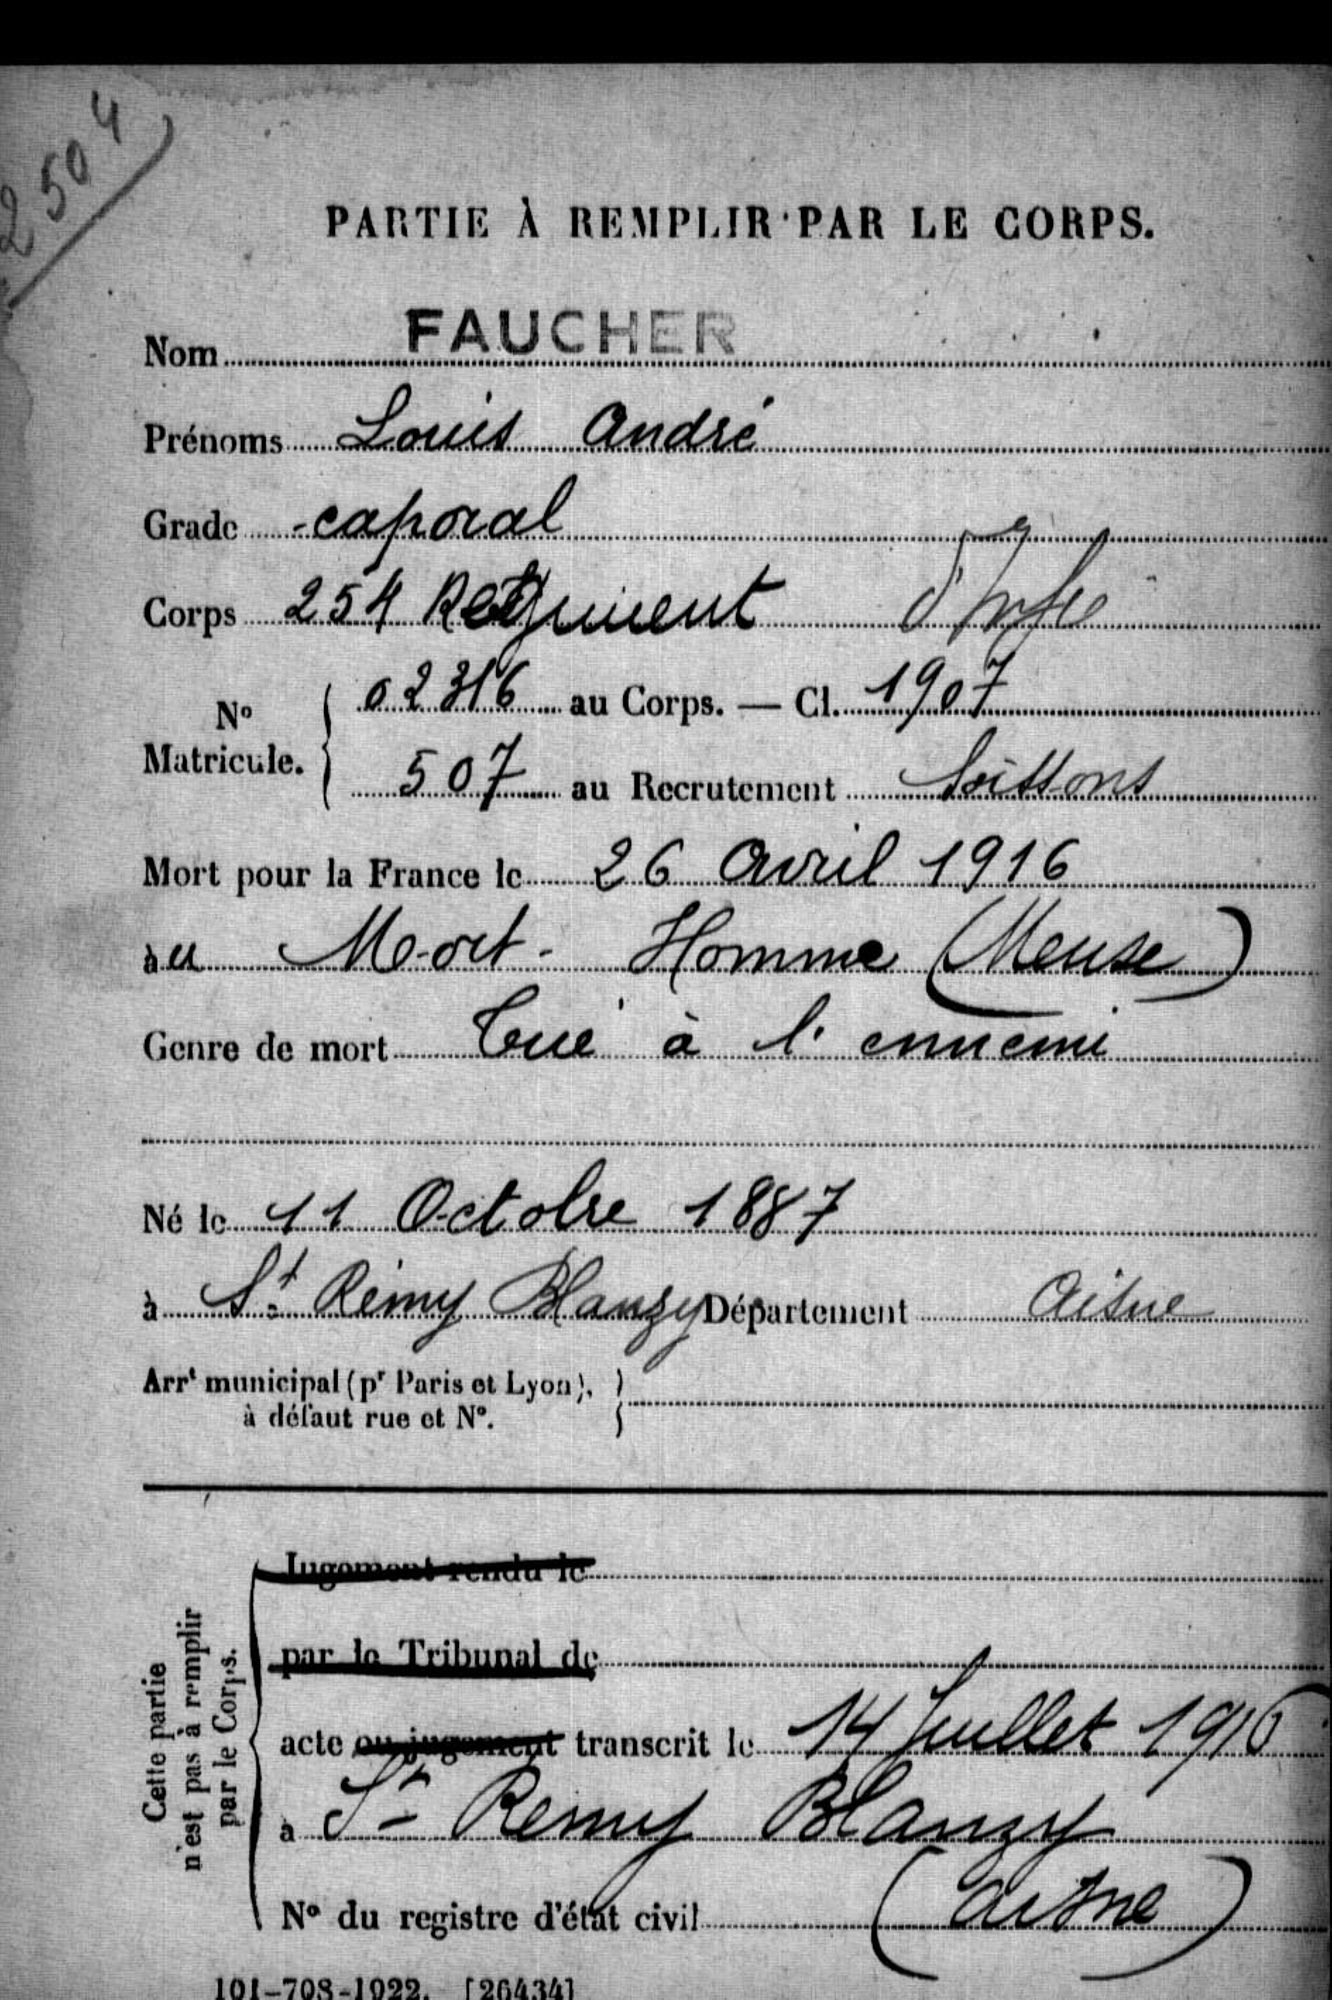 2504
PARTIE À REMPLIR PAR LE CORPS.
Nom FAUCHER
Prénoms Louis André
Grade caporal
Corps 254 Regiment d'Infie
N° Matricule. 02316 au Corps. — Cl. 1907
507 au Recrutement Soissons
Mort pour la France le 26 Avril 1916
au Mort-Homme (Meuse)
Genre de mort Tué à l'ennemi
Né le 11 Octobre 1887
à St Rémy Blanzy Département Aisne
Arrt municipal (pr Paris et Lyon),
à défaut rue et N°.
Cette partie
n'est pas à remplir
par le Corps.
Jugement rendu le
par le Tribunal de
acte ou jugement transcrit le 14 Juillet 1916
à St Remy Blanzy
N° du registre d'état civil (Aisne)
101-708-1922. [26434]